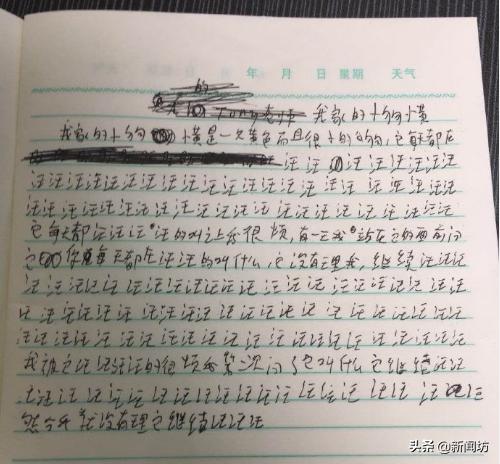 年 月 日 星期 天气
的
我家的小狗小黄
我家的小狗小黄是一只黄色而且很小的狗狗,它每天都在
汪汪汪汪汪汪汪汪
汪汪汪汪汪汪汪汪汪汪汪汪汪汪汪汪汪汪汪
汪汪汪汪汪汪汪汪汪汪汪汪汪汪汪汪汪汪汪汪
它每天都汪汪汪汪的叫让我很烦,有一天我站在它的面前问
它你每天都在汪汪的叫什么,它没有理我,继续汪汪汪
汪汪汪汪汪汪汪汪汪汪汪汪汪汪汪汪汪汪汪汪
汪汪汪汪汪汪汪汪汪汪汪汪汪汪汪汪汪汪汪
汪汪汪汪汪汪汪汪汪汪汪汪汪汪汪汪汪汪汪汪
我被它汪汪汪汪的很烦我第二次问了它叫什么它继续汪汪
汪汪汪汪汪汪汪汪汪汪汪汪汪汪汪汪汪汪汪
我没有理它继续汪汪汪
头条 @新闻坊